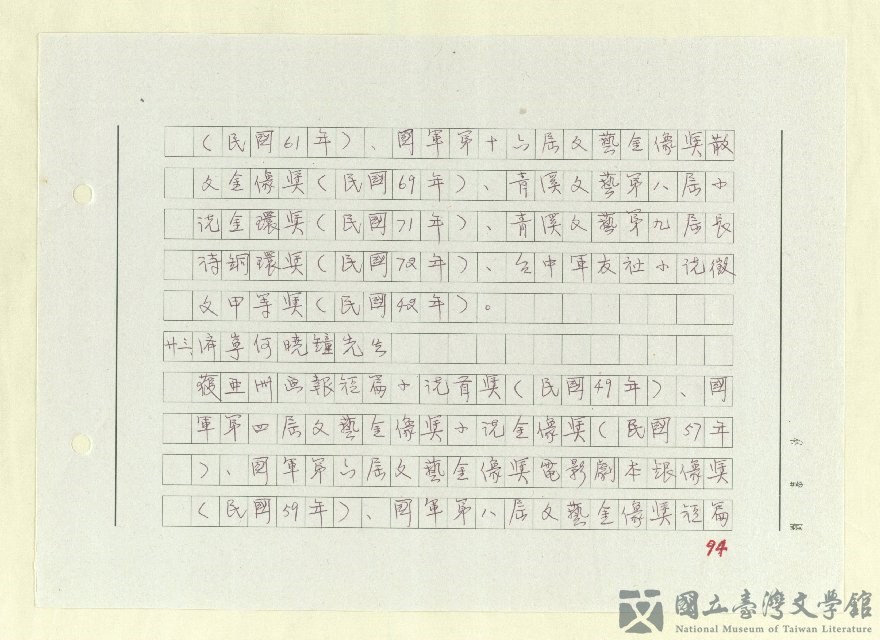 （民國61年）、國軍第十六屆文藝金像獎散
文金像獎（民國69年）、青溪文藝第八屆小
說金環獎（民國71年）、青溪文藝第九屆長
詩銅環獎（民國72年）、台中軍友社小說徵
文甲等獎（民國42年）。
廿三、濟寧何曉鐘先生
獲亞洲画報短篇小說首獎（民國49年）、國
軍第四屆文藝金像獎小說金像獎（民國57年
）、國軍第六屆文藝金像獎電影劇本銀像獎
（民國59年）、國軍第八屆文藝金像獎短篇
94
國立臺灣文學館
National Museum of Taiwan Literature